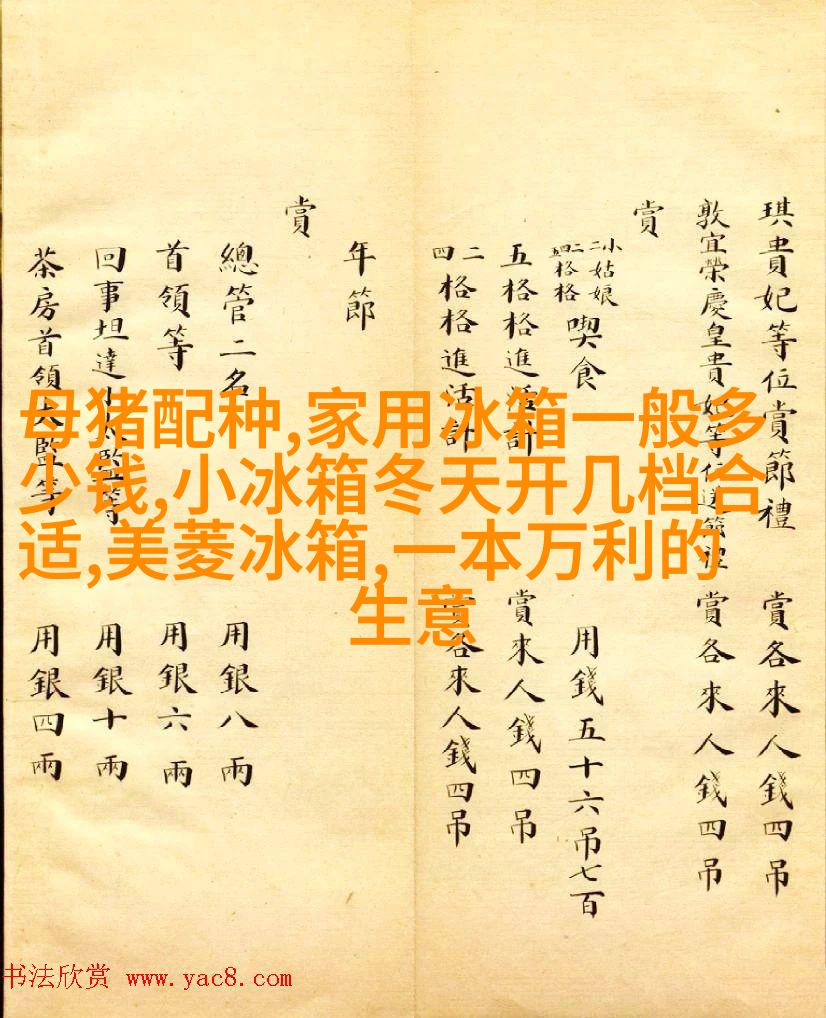 琪貴妃等位賞節禮 賞各來人錢四吊
敦宜榮慶皇貴妃等位進節禮 賞各來人錢四吊
賞
小姑娘
二二格格
四格格
喫食 用錢五十六吊七百
五格格進活計 賞來人錢四吊
二四格格進活計 賞各來人錢四吊
年節
賞
總管二名 用銀八兩
首領等 用銀六兩
回事坦達小太監等 用銀十兩
茶房首領太監等 用銀四兩
母猪配种,家用冰箱一般多
少钱,小冰箱冬天开几档合
适,美菱冰箱,一本万利的
生意
书法欣赏 www.yac8.com